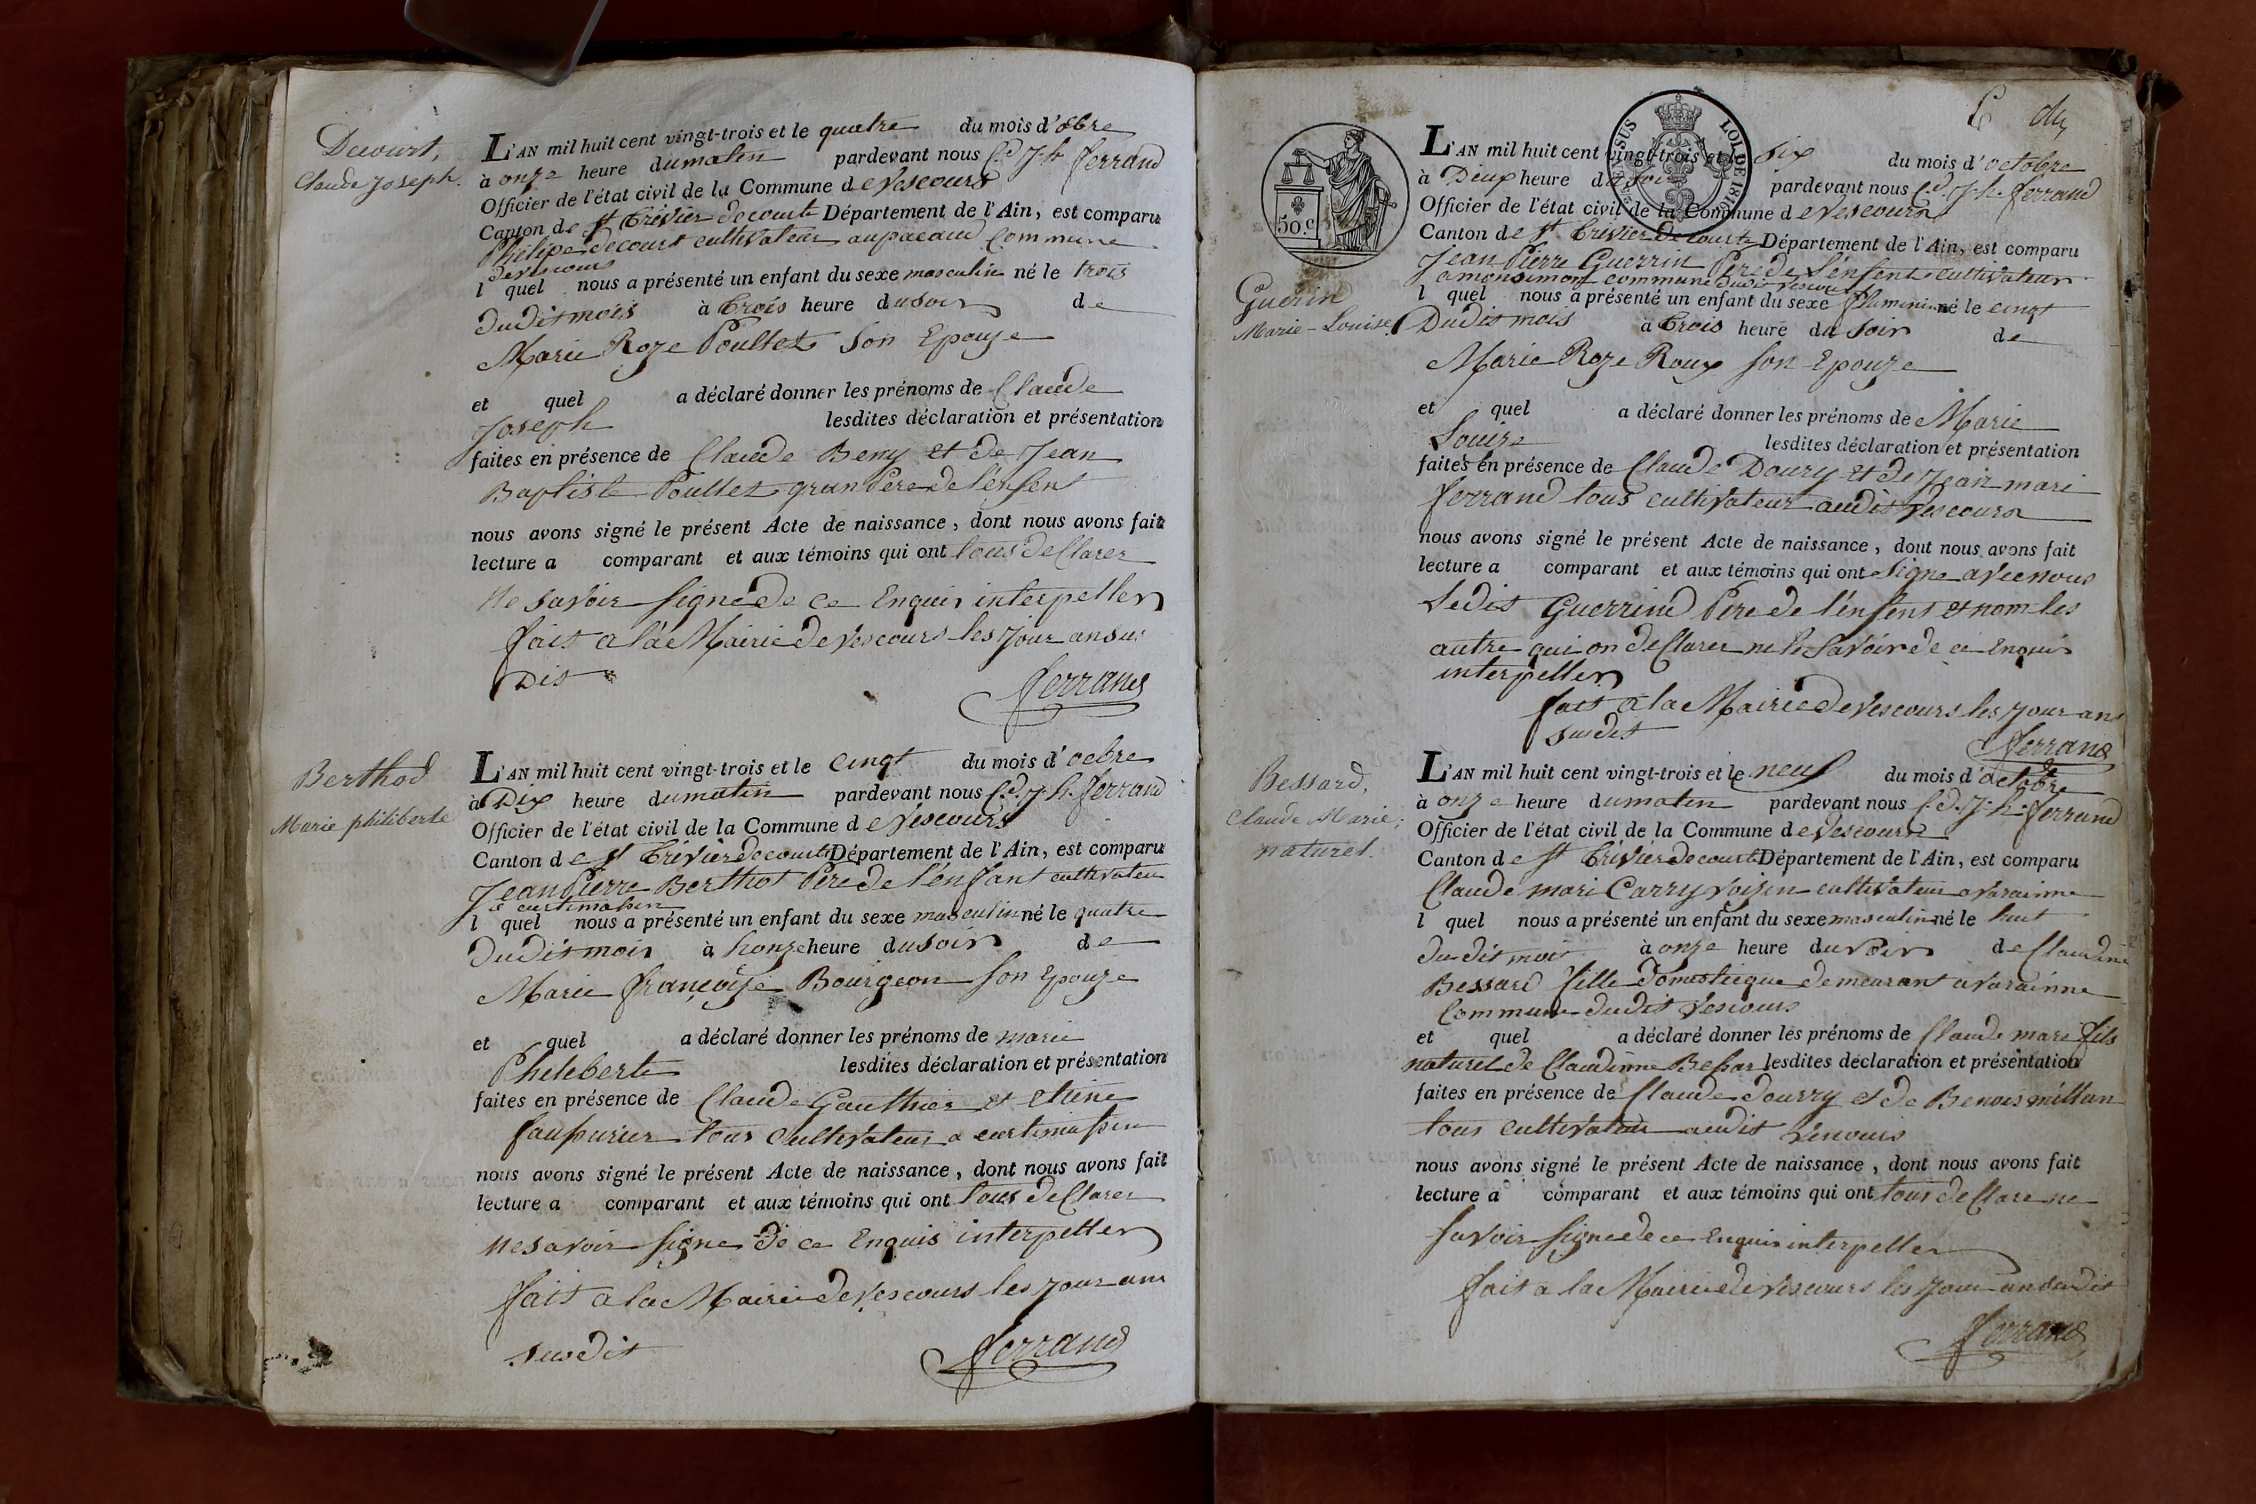 Decourt,
Claude Joseph.
L'AN mil huit cent vingt-trois et le quatre du mois d'8bre
à onze heure du matin pardevant nous Cd. Jh ferrand
Officier de l'état civil de la Commune de Vescours
Canton de St Trévier de courte Département de l'Ain, est comparu
Philipe decourt cultivateur au paçaud Commune
de vescours
l quel nous a présenté un enfant du sexe masculin né le trois
dudit mois à trois heure du soir de
Marie Roze Poullet Son Epouze
et quel a déclaré donner les prénoms de Claude
Joseph lesdites déclaration et présentation
faites en présence de Claude Beny et de Jean
Baptiste Poullet gran Pere de l'énfent
nous avons signé le présent Acte de naissance, dont nous avons fait
lecture a comparant et aux témoins qui ont tous de Clarer
Ne savoir signé de ce Enquis interpeller
fait a la Mairie de vescours les jour an su
Dit
ferrand
Berthod
Marie philiberte
L'AN mil huit cent vingt-trois et le cinqt du mois d'ocbre
à Dix heure du matin pardevant nous Cd. Jh. ferrand
Officier de l'état civil de la Commune de Vescours
Canton de St Trévier de courte Département de l'Ain, est comparu
Jean Pierre Berthot Pere de l'énfant cultivateu
a curtimassin
l quel nous a présenté un enfant du sexe masculin né le quatre
dudit mois à honze heure du soir de
Marie françoise Bourgeon Son Epouze
et quel a déclaré donner les prénoms de marie
Pheleberte lesdites déclaration et présentation
faites en présence de Claude Gauthier et etiene
faussurier tous cultivateur a curtimassin
nous avons signé le présent Acte de naissance, dont nous avons fait
lecture a comparant et aux témoins qui ont tous de Clarer
ne savoir signe de ce Enquis interpeller
fait a la Mairie de vescours les jour an
susdit
ferrand
50.c
LOI DE 1816
Guérin
Marie-Louise.
L'AN mil huit cent vingt-trois et le Six du mois d'octobre
à Deux heure du soir pardevant nous Cd. Jh. ferrand
Officier de l'état civil de la Commune de Vescours
Canton de St Trivier de courte Département de l'Ain, est comparu
Jean Pierre Guerrin Pere de l'énfent cultivateur
a monsimon commune dudit vescours
l quel nous a présenté un enfant du sexe fheminin né le cinqt
Dudit mois à trois heure du soir de
Marie Roze Roux son Epouze
et quel a déclaré donner les prénoms de Marie
Louize lesdites déclaration et présentation
faites en présence de Claude Doury et de Jean mari
ferrand tous cultivateur audit vescours
nous avons signé le présent Acte de naissance, dont nous avons fait
lecture a comparant et aux témoins qui ont signe avec nous
Ledit Guerrind Pere de l'énfent et nom les
autre qui on de Clarer ne le savoir de ce Enquis
interpeller
fait a la Mairie de vescours les jour an
susdit
ferrand
Bessard,
Claude Marie,
naturel.
L'AN mil huit cent vingt-trois et le neuf du mois d'octobre
à onze heure du matin pardevant nous Cd. Jh. ferrand
Officier de l'état civil de la Commune de Vescours
Canton de St Trévier de courte Département de l'Ain, est comparu
Claude mari Carry voizin cultivateur a varainne
l quel nous a présenté un enfant du sexe masculin né le huit
dudit mois à onze heure du soir de Claudine
Bessard fille Domesticque demeurant a varainne
Commune dudit vescours
et quel a déclaré donner les prénoms de Claude mari fils
naturel de Claudinne Bessar lesdites déclaration et présentation
faites en présence de Claude dourry et de Benois millan
tous cultivateur audit vescours
nous avons signé le présent Acte de naissance, dont nous avons fait
lecture a comparant et aux témoins qui ont tous de Clare ne
savoir signe de ce Enquis interpeller
fait a la Mairie de vescours les jour an susdit
ferrand